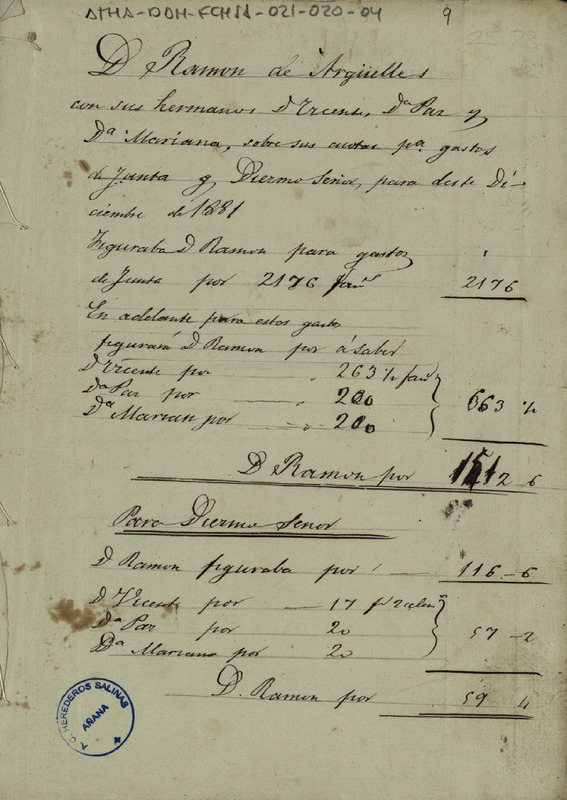 ATHA-DDH-FCHSS-021-020-04
9
D Ramon de Argüelles
con sus hermanos, Dn Vicente, Dª Paz y
Dª Mariana, sobre sus cuotas pª gastos
de Junta y Diezmo Señor, para desde Di-
ciembre de 1881
Figuraba D Ramon para gastos
de Junta por 2176 fans 2176
En adelante para estos gastos
figurará D Ramon por á saber
D Vicente por 263 ½ fans
Dª Paz por 200 663 ½
Dª Marian por 200
D Ramon por 1512 6
Para Diezmo Señor
D Ramon figuraba por 116-6
D Vicente por 17 fs 2 celens
Dª Paz por 20 57-2
Dª Mariana por 20
D. Ramon por 59 4
HEREDEROS SALINAS
AÑANA